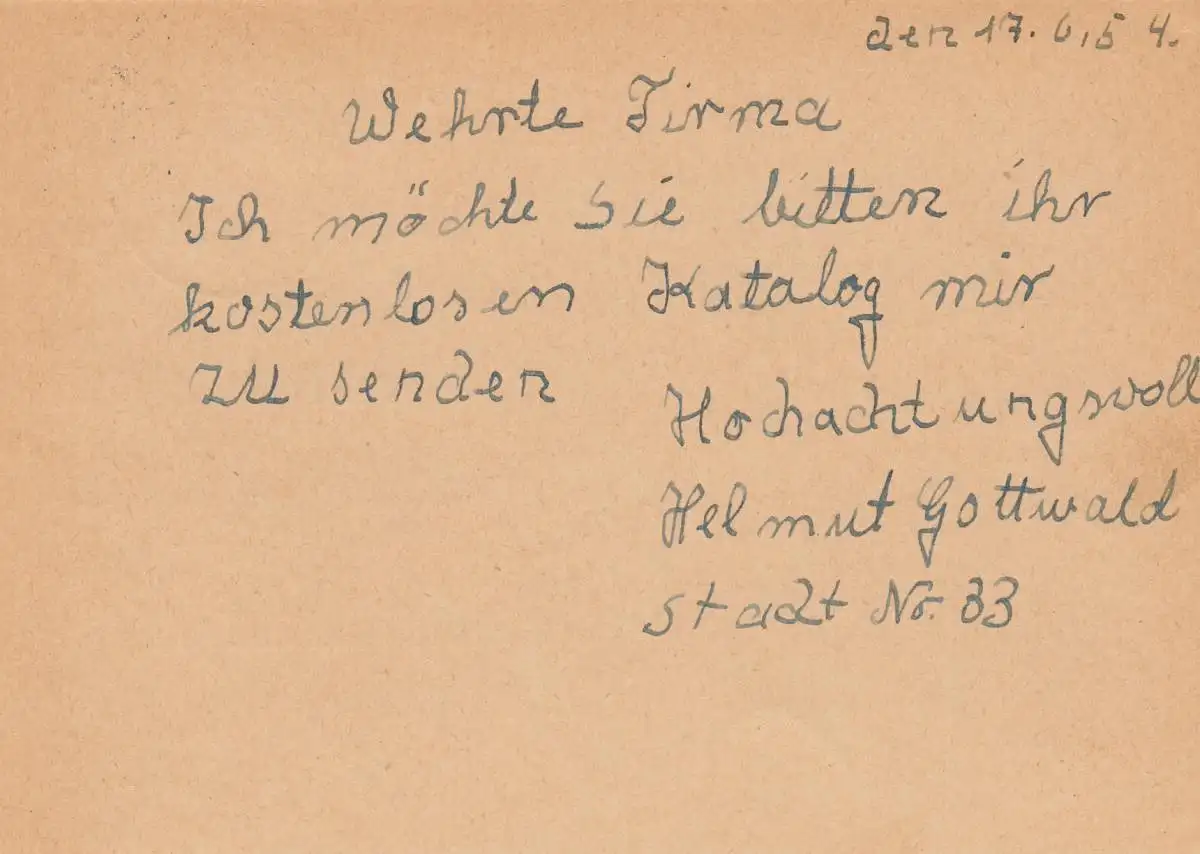 den 17. 6,5 4.
Wehrte Firma
Ich möchte Sie bitten ihr
kostenlosen Katalog mir
zu senden
Hochachtungsvoll
Helmut Gottwald
Stadt Nr. 33